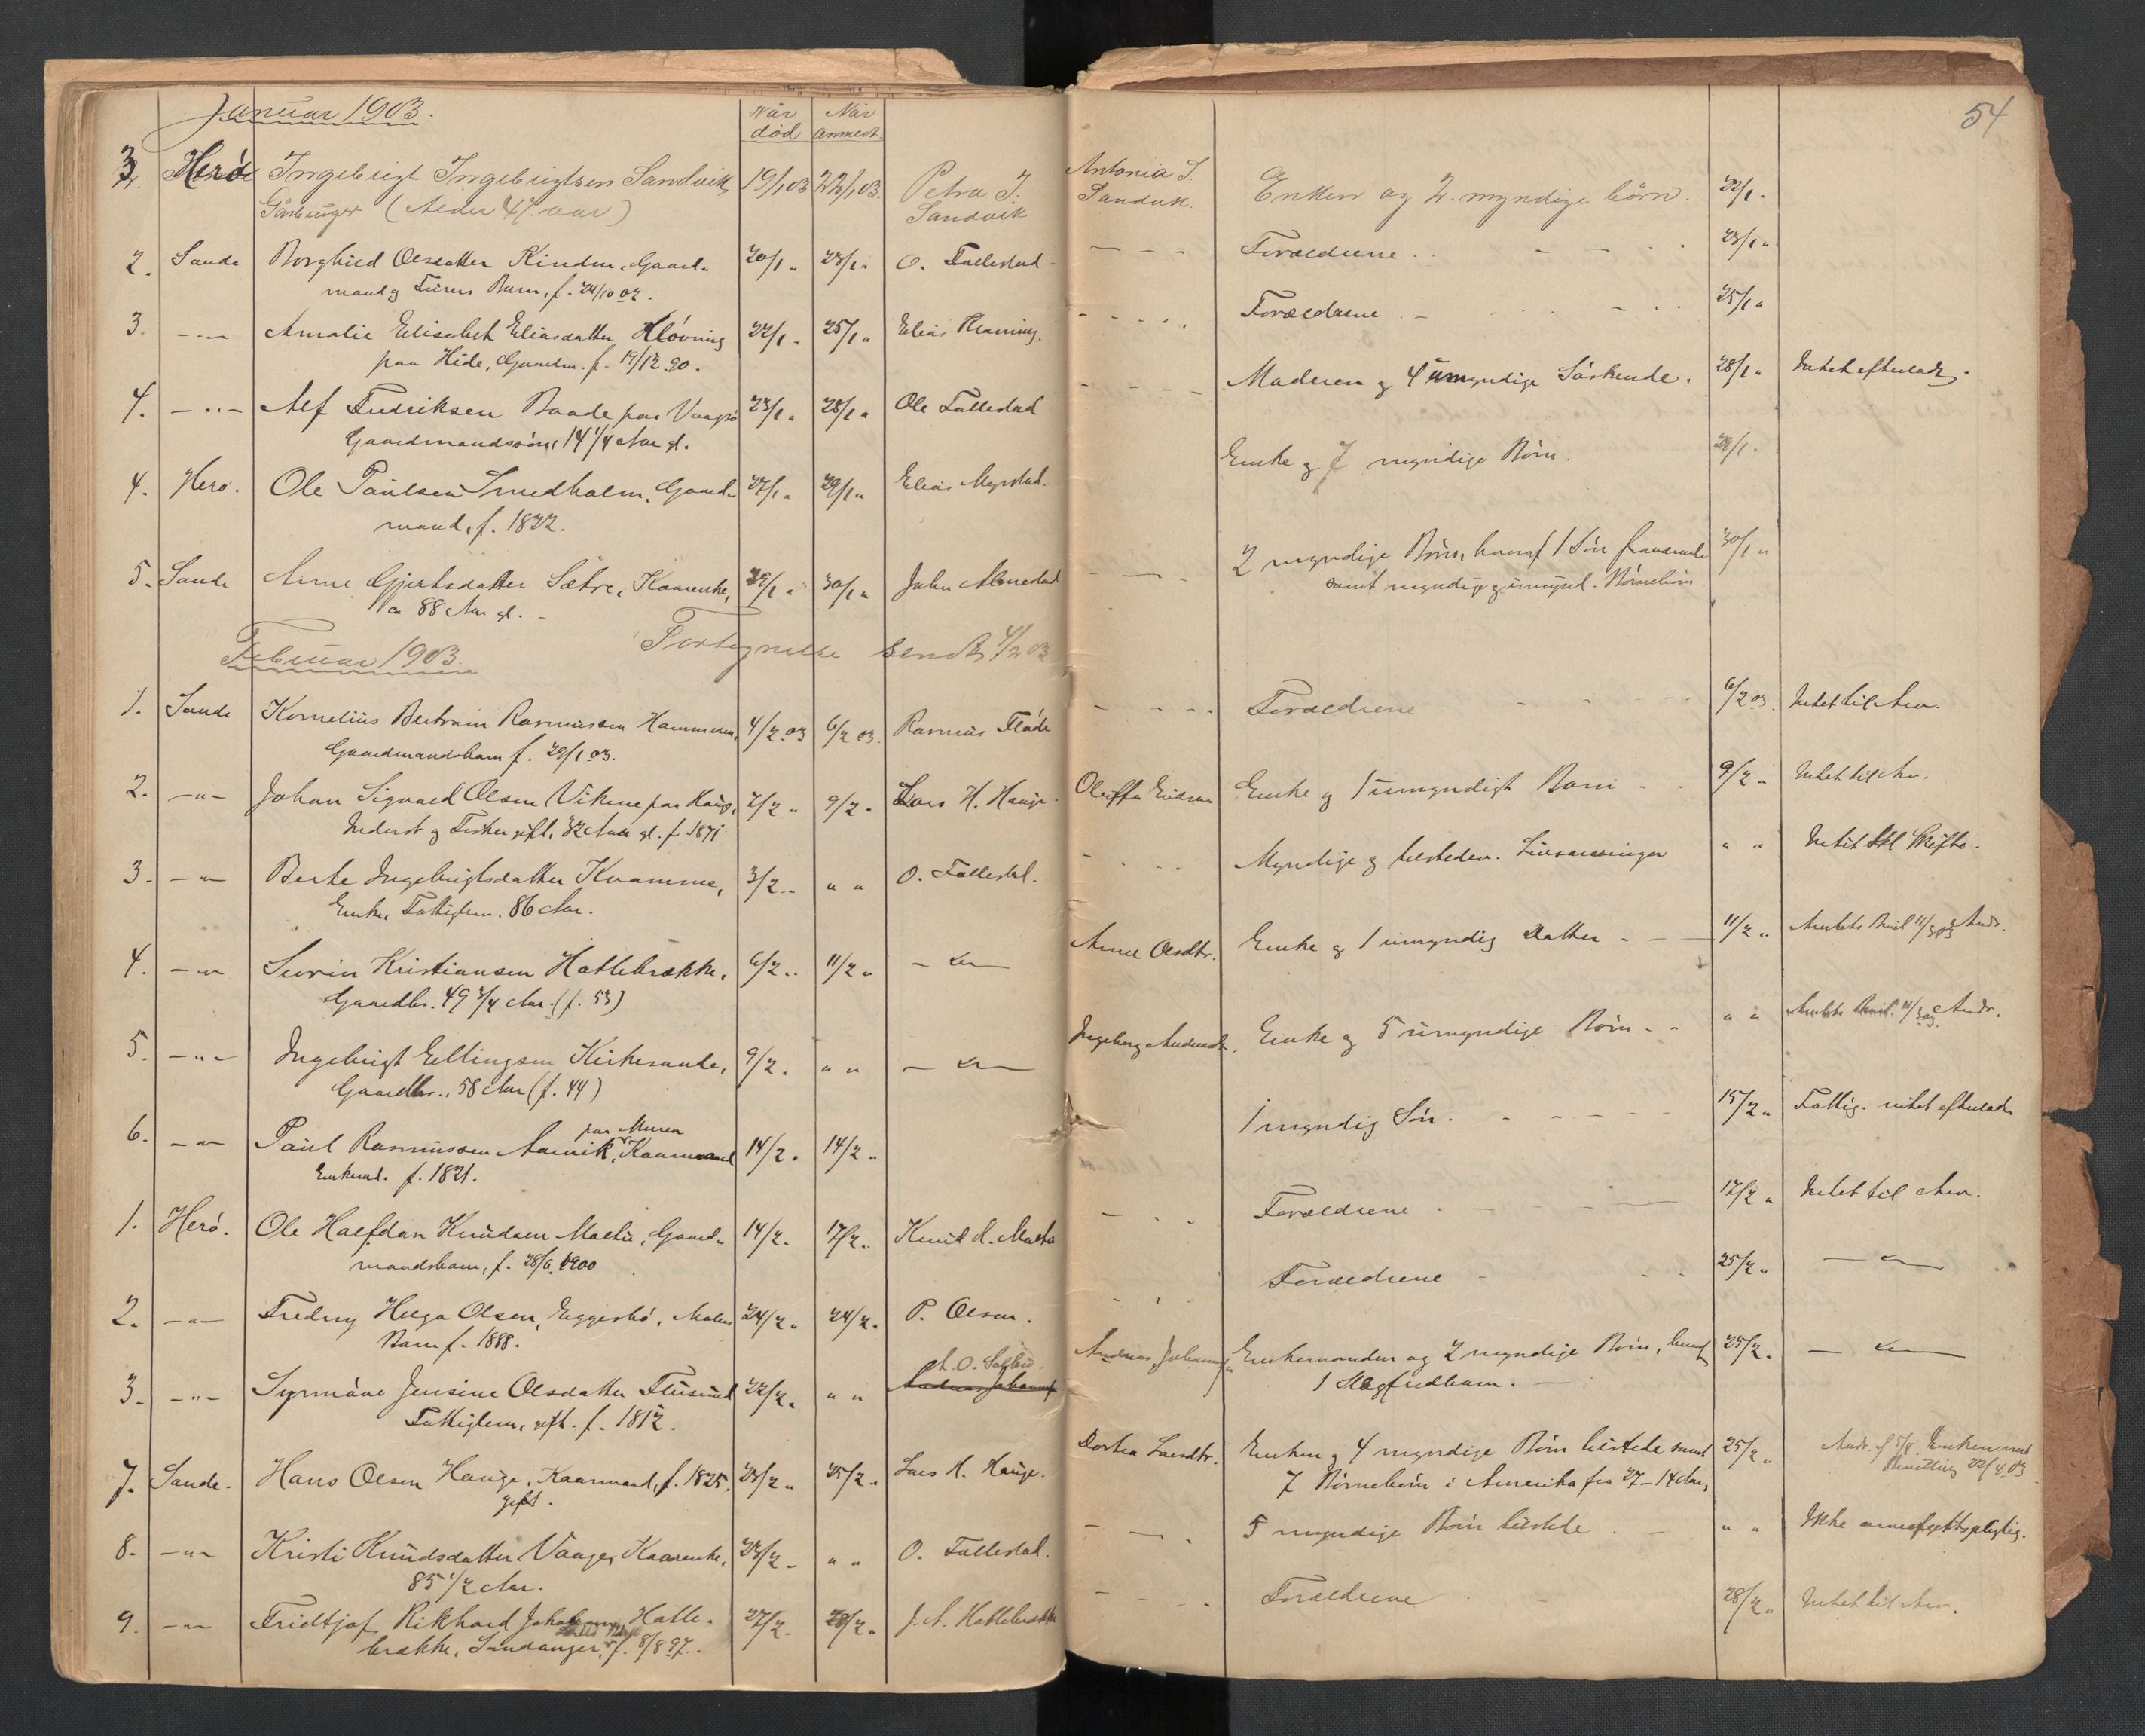 Januar 1903.
Når død
Når anmeldt
54
3. Herø Ingebrigt Ingebrigtsen Sandvik 19/1 03 22/1 03. Petra I. Antonia I. Enken og 2 myndige børn. 22/1 -
Gårdbruger (Alder 47 aar) Sandvik Sandvik.
2. Sande Borghild Olsdatter Kinden, Gaard- 20/1 " 23/1 " O. Fallestad - Forældrene 23/1 "
mand og Barn, f. 24/10 02.
3. -"- Amalie Elisabet Eliasdatter Kløvning 22/1 " 25/1 " Elias Kløvning. Forældrene 25/1 "
paa Hide, Gaardm. f. 19/12 90.
4. -"- Alf Fredriksen Baade paa Vaagsø 23/1 " 28/1 " Ole Fallestad Moderen og 4 umyndige Søskende. 28/1 " Intet efterladt.
Gaardmandssøn, 14 1/4 Aar gl.
4. Herø. Ole Paulsen Smedholm, Gaard- 27/1 " 29/1 " Elias Myrstad. Enke og 7 myndige Børn. 29/1 "
mand, f. 1822.
5. Sande Anne Gjertsdatter Sætre, Kaarenke, 29/1 " 30/1 " John Almestad 2 myndige Børn, hvoraf 1 Søn fraværende 30/1 "
ca 88 Aar gl. - samt myndige og umynd. Børnebørn
Februar 1903. Fortegnelse sendt 4/2 03
1. Sande Kornelius Bertram Rasmussen Hammeren, 4/2 03 6/2 03. Rasmus Fløde Forældrene 6/2 03. Intet til Arv.
Gaardmandsbarn f. 29/1 03.
2. -"- Johan Sigvard Olsen Vikene paa Haug, 7/2 " 9/2 " Lars H. Hauge. Oluffa Enke og 1 umyndigt Barn 9/2 " Intet til Arv.
Inderst og Fisker gift, 32 Aar gl. f. 1871
3. -"- Berte Ingebrigtsdatter Kvamme, 3/2 " " " O. Fallestad. Myndige og tilstedev. Livsarvinger " " Intet til Skifte.
Enke Fattiglem. 86 Aar.
4. -"- Severin Kristiansen Hatlebrække, 6/2 " 11/2 " -"- Anne Olsdtr. Enke og 1 umyndig Datter 11/2 "
Gaardbr. 49 3/4 Aar. (f. 53)
5. -"- Ingebrigt Ellingsen Kirkesande, 9/2 " " " -"- Ingeborg Enke og 5 umyndige Børn " "
Gaardbr. 58 Aar (f. 44)
6. -"- Paul Rasmussen Aarvik, paa Muren Kaarmand 14/2 " 14/2 " 1 myndig Søn. 15/2 " Fattig. intet efterladt
Enkemd. f. 1821.
1. Herø. Ole Halfdan Knudsen Moltu, Gaard- 14/2 " 17/2 " Knud O. Moltu Forældrene 17/2 " Intet til Arv.
mandsbarn, f. 28/6 1900
2. -"- Fredny Helga Olsen, Eggesbø, Maler 24/2 " 24/2 " P. Olsen. Forældrene 25/2 " -"-
Barn f. 1888.
3. -"- Jensine Olsdatter Flusund 22/2 " " " A. O. Andreas Enkemanden og 2 myndige Børn, hvoraf 25/2 " -"-
Fattiglem, gift. f. 1812. 1 Slegfredbarn.
7. Sande. Hans Olsen Hauge, Kaarmand, f. 1825. 23/2 " 25/2 " Lars H. Hauge. Dortea Larsdtr. Enken og 4 myndige Børn tilstede samt 25/2 "
gift. 7 Børnebørn i Amerika fra 27-14 Aar,
8. -"- Kristi Knudsdatter Vaage, Kaarenke, 23/2 " " " O. Fallestad. 5 myndige Børn tilstede " " Ikke arveafgiftspligtig.
85 1/2 Aar.
9. -"- Fridtjof Rikhard Hatle- 27/2 " 28/2 " J. A. Hatlebrække Forældrene 28/2 " Intet til Arv.
brække, Sandanger, f. 8/8 97.